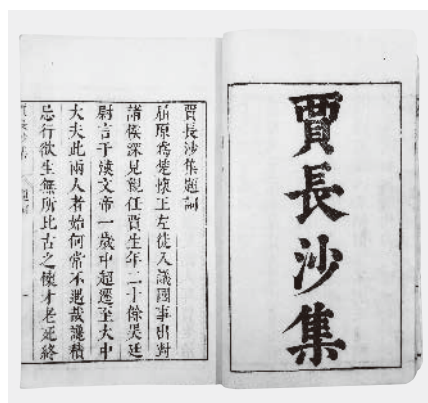 賈長沙集
賈長沙集題詞
屈原爲楚懷王左徒入議國事出對
諸侯深見親任賈生年二十餘吳廷
尉言于漢文帝一歲中超遷至大中
大夫此兩人者始何常不遇哉讒積
忌行欲生無所比古之懷才老死終